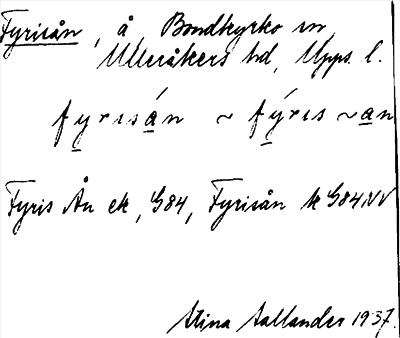 Fyrisån, å, Bondkyrko sn,
Ulleråkers hd, Upps. l.
fyrisán ~ fýris ~ an
Fyris Ån ek, G84, Fyrisån k G84NV
Stina Aallander 1937.